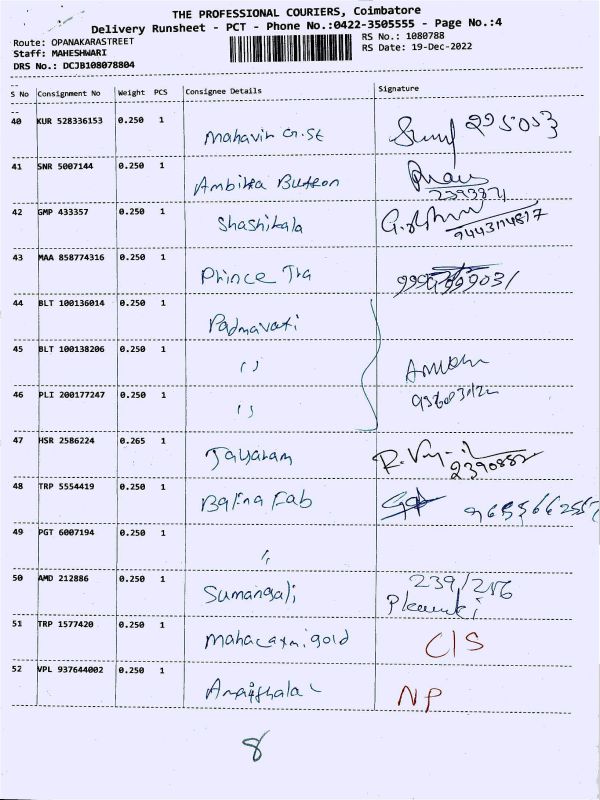 THE PROFESSIONAL COURIERS, Coimbatore
Delivery Runsheet - PCT - Phone No.:0422-3505555 - Page No.:4
Route: OPANAKARASTREET
Staff: MAHESHWARI
DRS No.: DCJB108078804
RS No.: 1080788
RS Date: 19-Dec-2022
S No Consignment No Weight PCS Consignee Details Signature
40 KUR 528336153 0.250 1 Mahavir 225053
41 SNR 5007144 0.250 1 Ambika Button
2393871
42 GMP 433357 0.250 1 Shashikala
43 MAA 858774316 0.250 1 Prince Tra
44 BLT 100136014 0.250 1 Padmavati
45 BLT 100138206 0.250 1 ,,
46 PLI 200177247 0.250 1 ,,
47 HSR 2586224 0.265 1 Jayaram
2390882
48 TRP 5554419 0.250 1 Fab
49 PGT 6007194 0.250 1 ,,
50 AMD 212886 0.250 1 Sumangali
51 TRP 1577420 0.250 1 Mahalaxmi gold C/S
52 VPL 937644002 0.250 1 NP
8